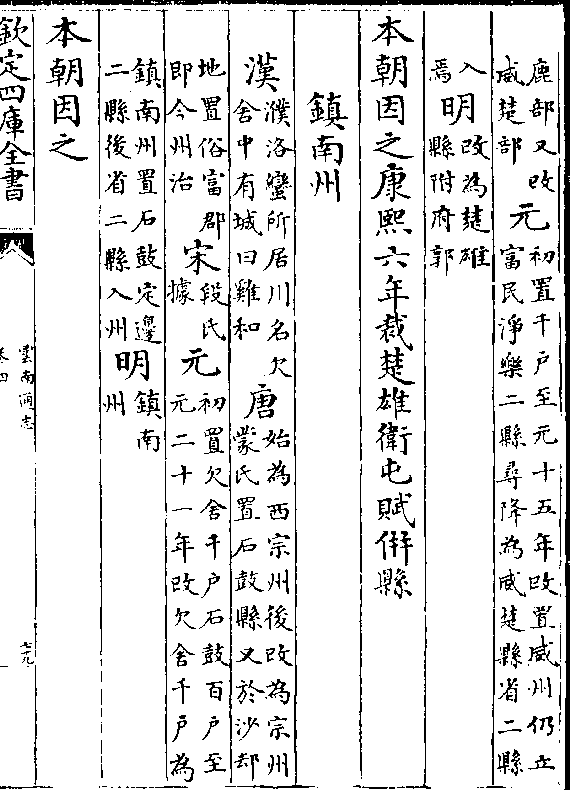 鹿部又改
威楚部 元 初置千户至元十五年改置威州仍立
富民淨樂二縣尋降為威楚縣省二縣
入改為楚雄
焉 明 縣附府郭
本朝因之康熙六年裁楚雄衛屯賦併縣
鎮南州
漢 濮洛蠻所居川名欠
舍中有城曰雞和 唐 始為西宗州後改為宗州
蒙氏置石鼓縣又於沙却
地置俗富郡
即今州治 宋 段氏
據 元 初置欠舍千户石鼓百户至
元二十一年改欠舍千户為
鎮南州置石鼓定邊
二縣後省二縣入州 明 鎮南
州
本朝因之
欽定四庫全書
雲南通志
卷四
七十九